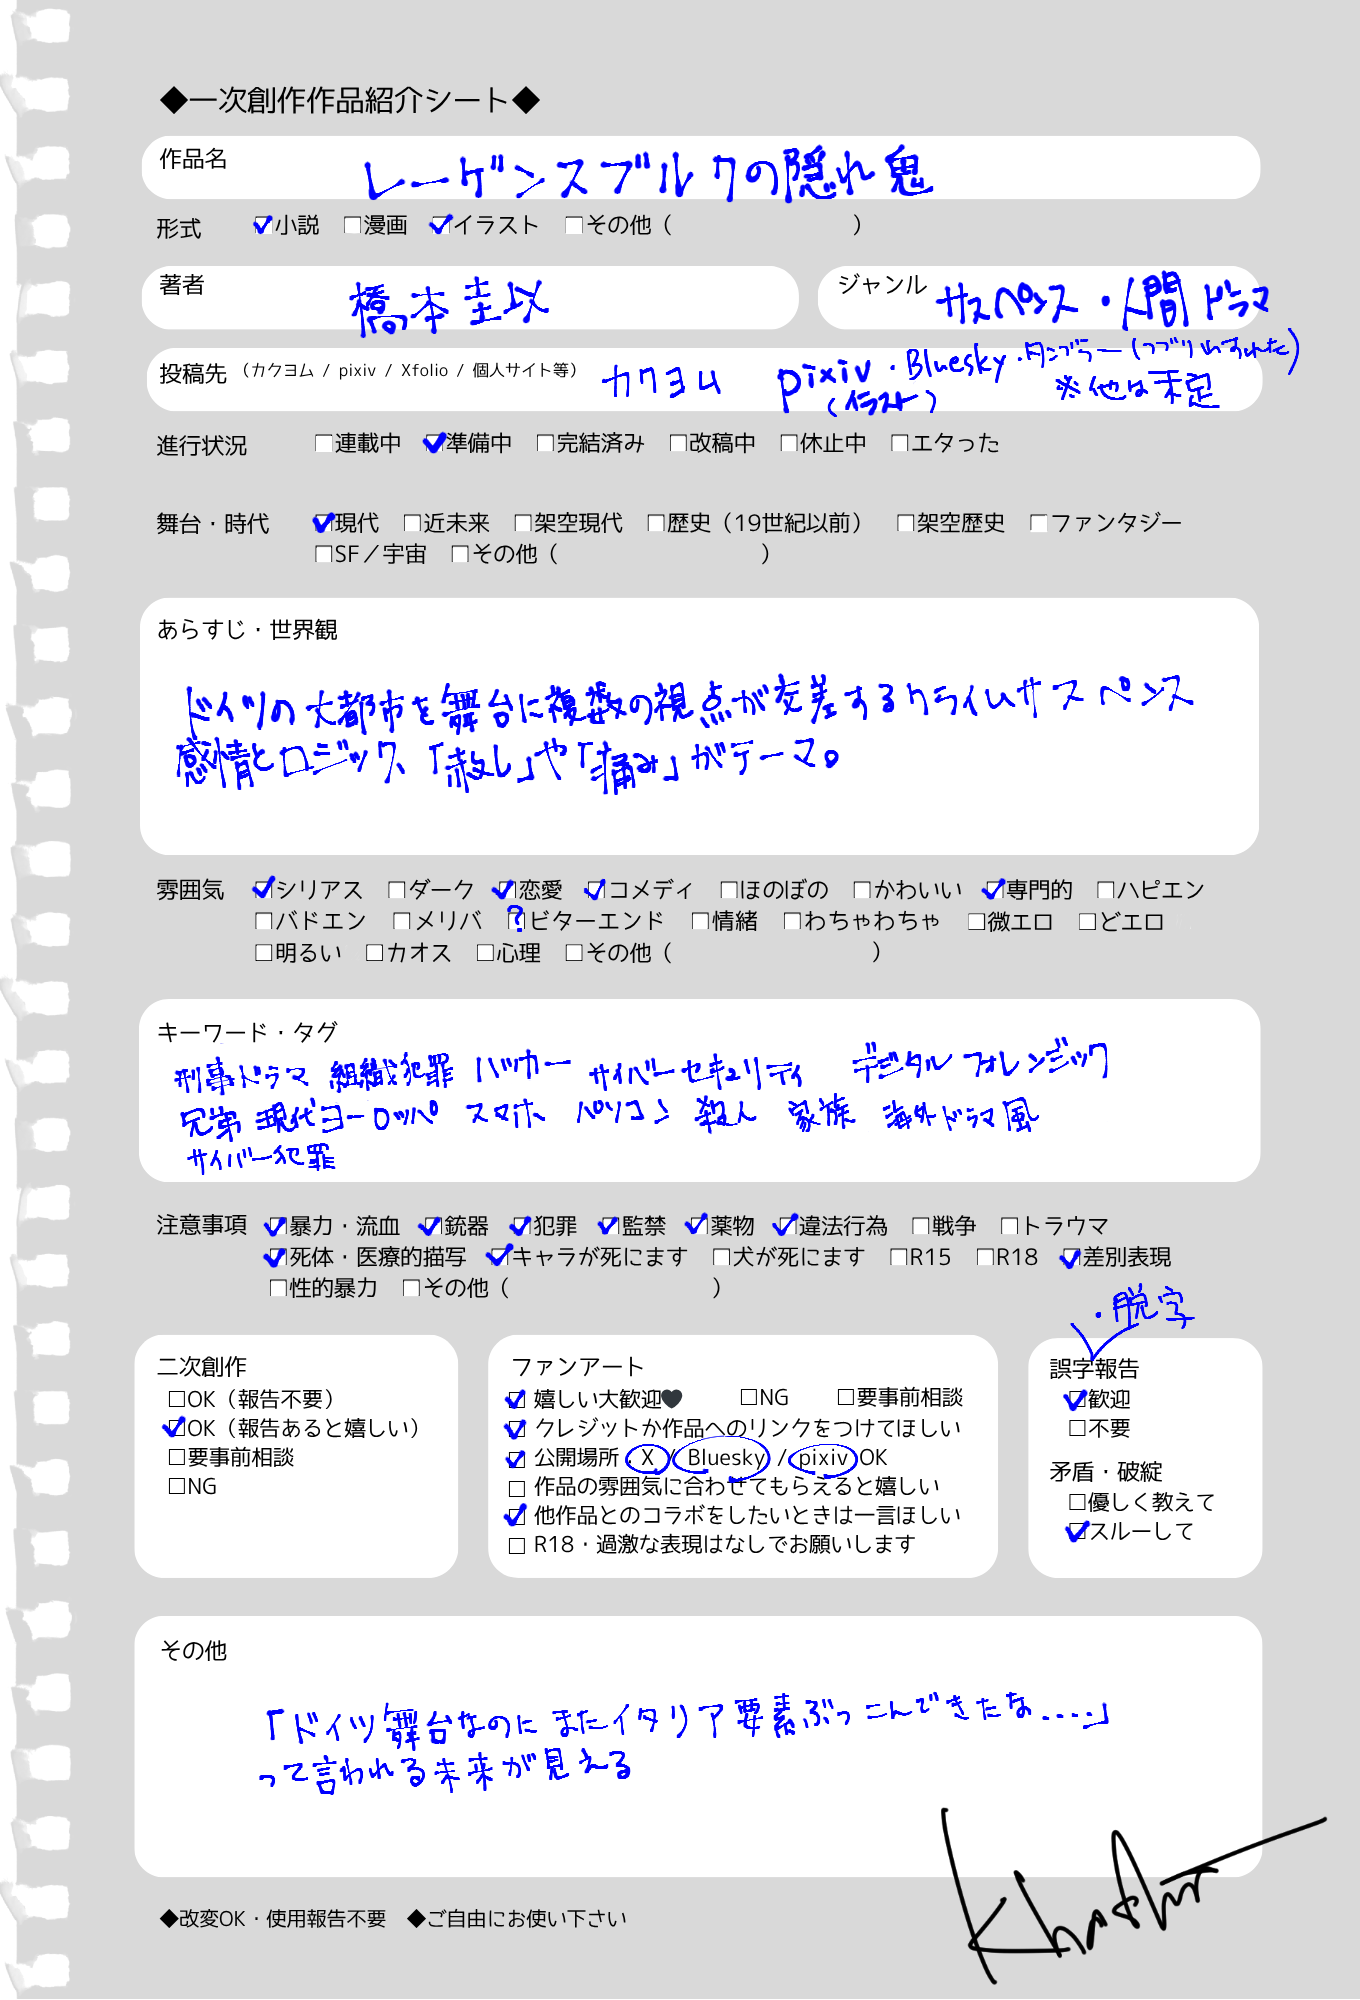 ◆一次創作作品紹介シート◆
作品名 レーゲンスブルクの隠れ鬼
形式 ☑小説 □漫画 ☑イラスト □その他（ ）
著者 橋本圭以 ジャンル サスペンス・人間ドラマ
投稿先 （カクヨム / pixiv / Xfolio / 個人サイト等） カクヨム pixiv・Bluesky・タンブラー(つづりわすれた)
(イラスト) ※他は未定
進行状況 □連載中 ☑準備中 □完結済み □改稿中 □休止中 □エタった
舞台・時代 ☑現代 □近未来 □架空現代 □歴史（19世紀以前） □架空歴史 □ファンタジー
□SF／宇宙 □その他（ ）
あらすじ・世界観
ドイツの大都市を舞台に複数の視点が交差するクライムサスペンス
感情とロジック、「赦し」や「痛み」がテーマ。
雰囲気 ☑シリアス □ダーク ☑恋愛 ☑コメディ □ほのぼの □かわいい ☑専門的 □ハピエン
□バドエン □メリバ ?□ビターエンド □情緒 □わちゃわちゃ □微エロ □どエロ
□明るい □カオス □心理 □その他（ ）
キーワード・タグ
刑事ドラマ 組織犯罪 ハッカー サイバーセキュリティ デジタルフォレンジック
兄弟 現代ヨーロッパ スマホ パソコン 殺人 家族 海外ドラマ風
サイバー犯罪
注意事項 ☑暴力・流血 ☑銃器 ☑犯罪 ☑監禁 ☑薬物 ☑違法行為 □戦争 □トラウマ
☑死体・医療的描写 ☑キャラが死にます □犬が死にます □R15 □R18 ☑差別表現
□性的暴力 □その他（ ）
二次創作
□OK（報告不要）
☑OK（報告あると嬉しい）
□要事前相談
□NG
ファンアート
☑ 嬉しい大歓迎♥ □NG □要事前相談
☑ クレジットか作品へのリンクをつけてほしい
☑ 公開場所：X / Bluesky / pixiv OK
□ 作品の雰囲気に合わせてもらえると嬉しい
☑ 他作品とのコラボをしたいときは一言ほしい
□ R18・過激な表現はなしでお願いします
・脱字
誤字報告
☑歓迎
□不要
矛盾・破綻
□優しく教えて
☑スルーして
その他
「ドイツ舞台なのにまたイタリア要素ぶっこんできたな....」
って言われる未来が見える
◆改変OK・使用報告不要 ◆ご自由にお使い下さい